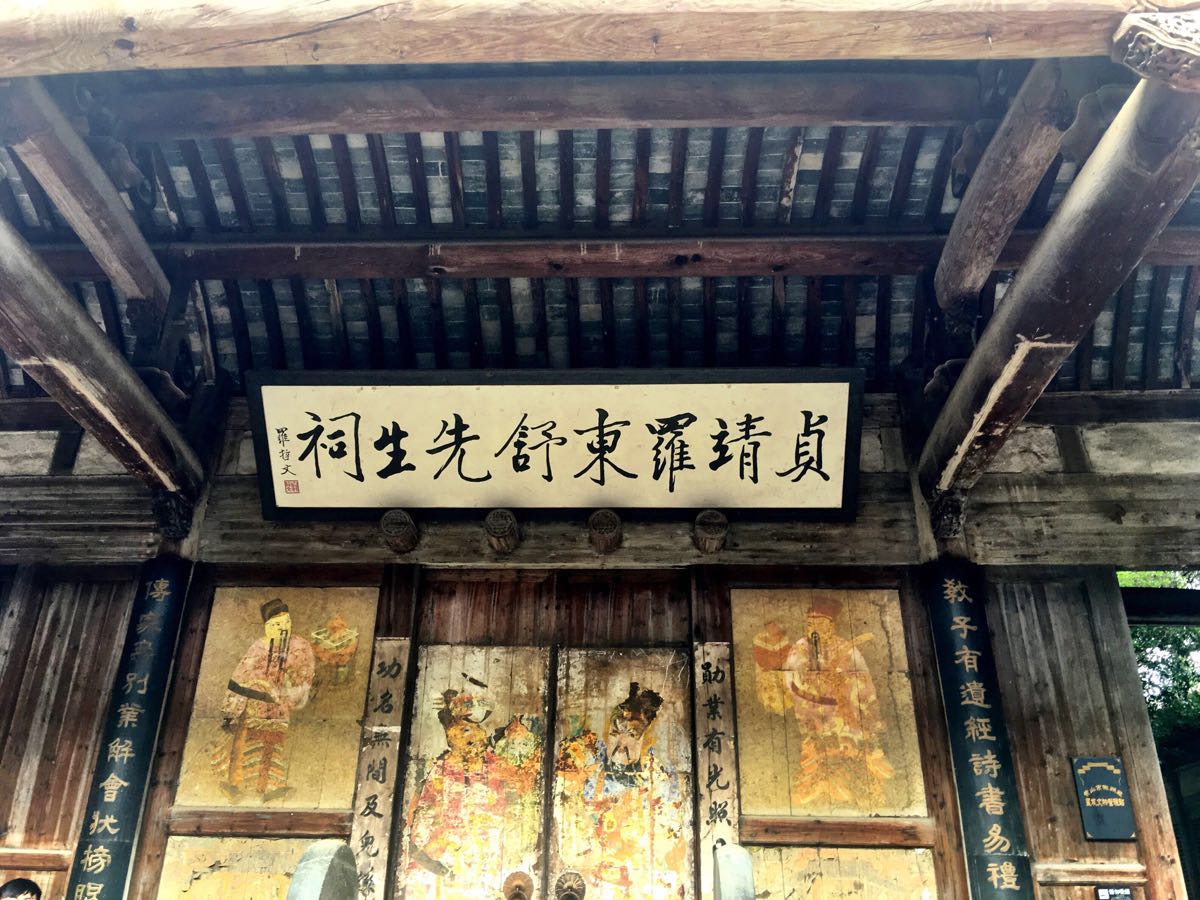 貞靖羅東舒先生祠
羅哲文
教子有遺經詩書易禮
傳家無別業解會狀榜眼
勛業有光照
功名無間及兒孫